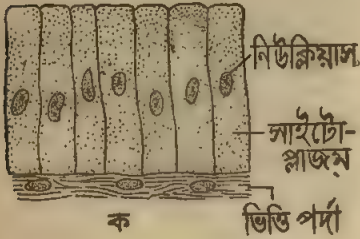 নিউক্লিয়াস
সাইটো-
প্লাজম্
ভিত্তি পর্দা
ক